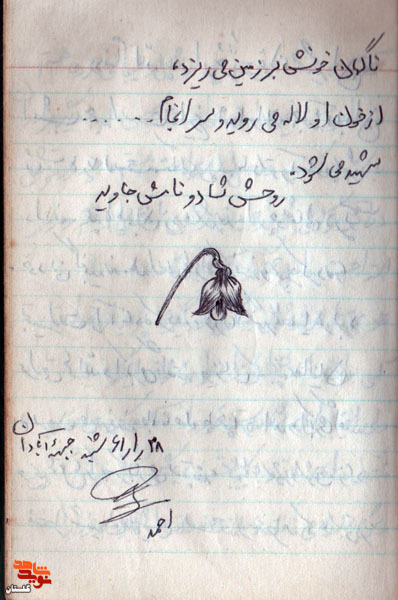 ناگهان خونش بر زمین می ریزد،
از خون او لاله می روید و سر انجام .......
شهید می شود.
روحش شاد و نامش جاوید
شنبه جبهه آبادان
احمد
نوید شاهد
گلستان